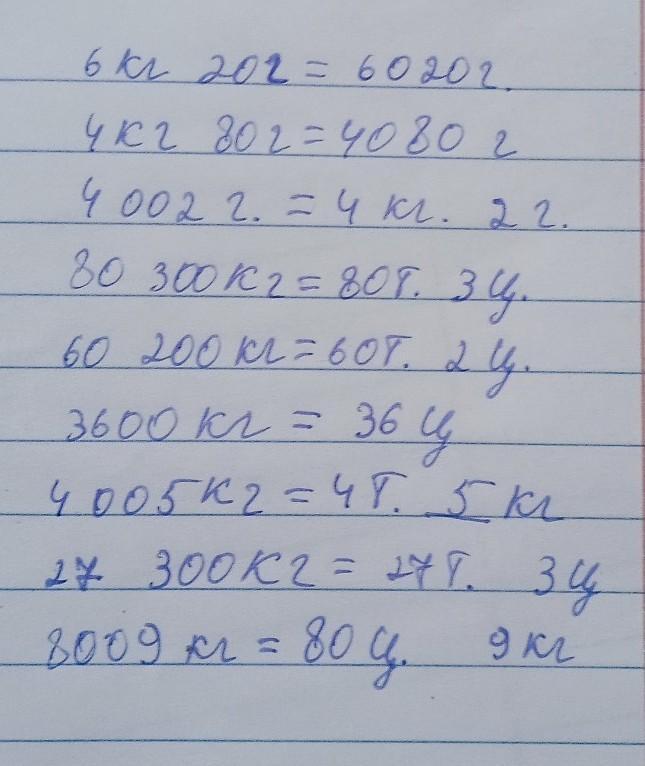 6 кг 20г = 6020г.
4кг 80г = 4080 г
4 002 г. = 4 кг. 2 г.
80 300кг = 80т. 3 ц.
60 200 кг = 60т. 2 ц.
3600 кг = 36 ц
4 005кг = 4т. 5 кг
27 300кг = 27т. 3 ц
8009 кг = 80 ц. 9 кг